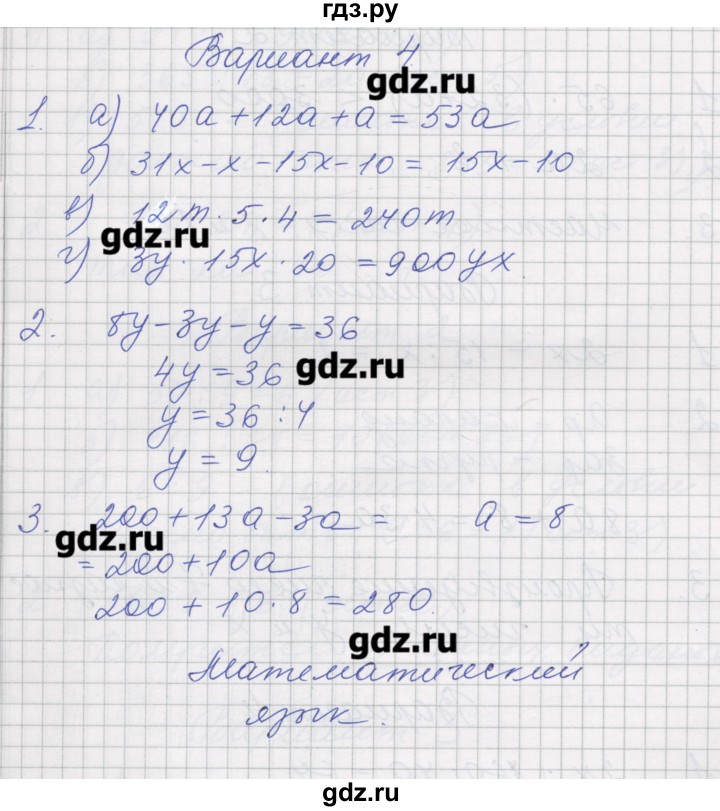 гдз.ру
Вариант 4
gdz.ru
1. а) 40а + 12а + а = 53а
б) 31х - х - 15х - 10 = 15х - 10
в) 12m · 5 · 4 = 240m
gdz.ru
г) 3у · 15х · 20 = 900ух
2. 8у - 3у - у = 36
4у = 36
gdz.ru
у = 36 : 4
у = 9.
3. 200 + 13а - 3а = а = 8
gdz.ru
= 200 + 10а
200 + 10 · 8 = 280.
gdz.ru
Математический
язык.
гдз.ру